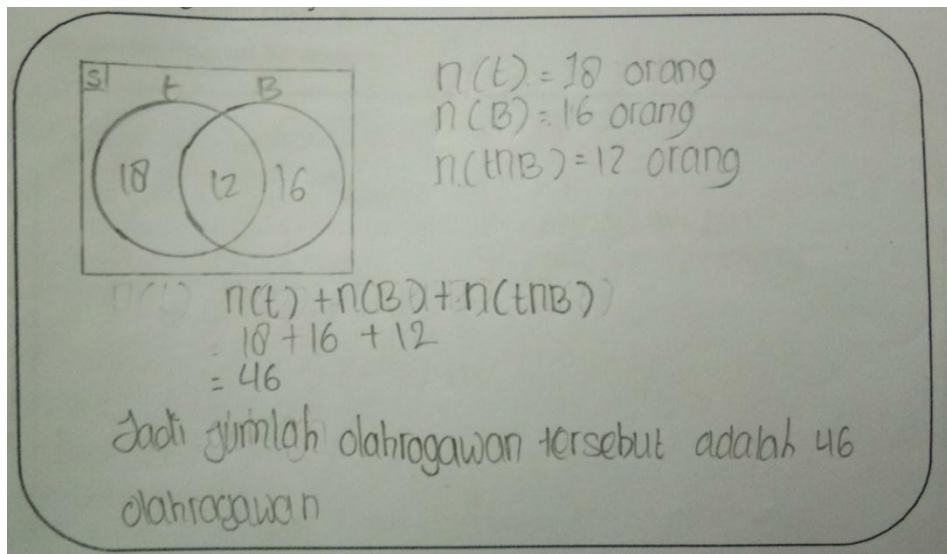 S t B
18 12 16
n(t) = 18 orang
n(B) = 16 orang
n(t∩B) = 12 orang
n(t) + n(B) + n(t∩B)
18 + 16 + 12
= 46
Jadi jumlah olahragawan tersebut adalah 46
olahragawan